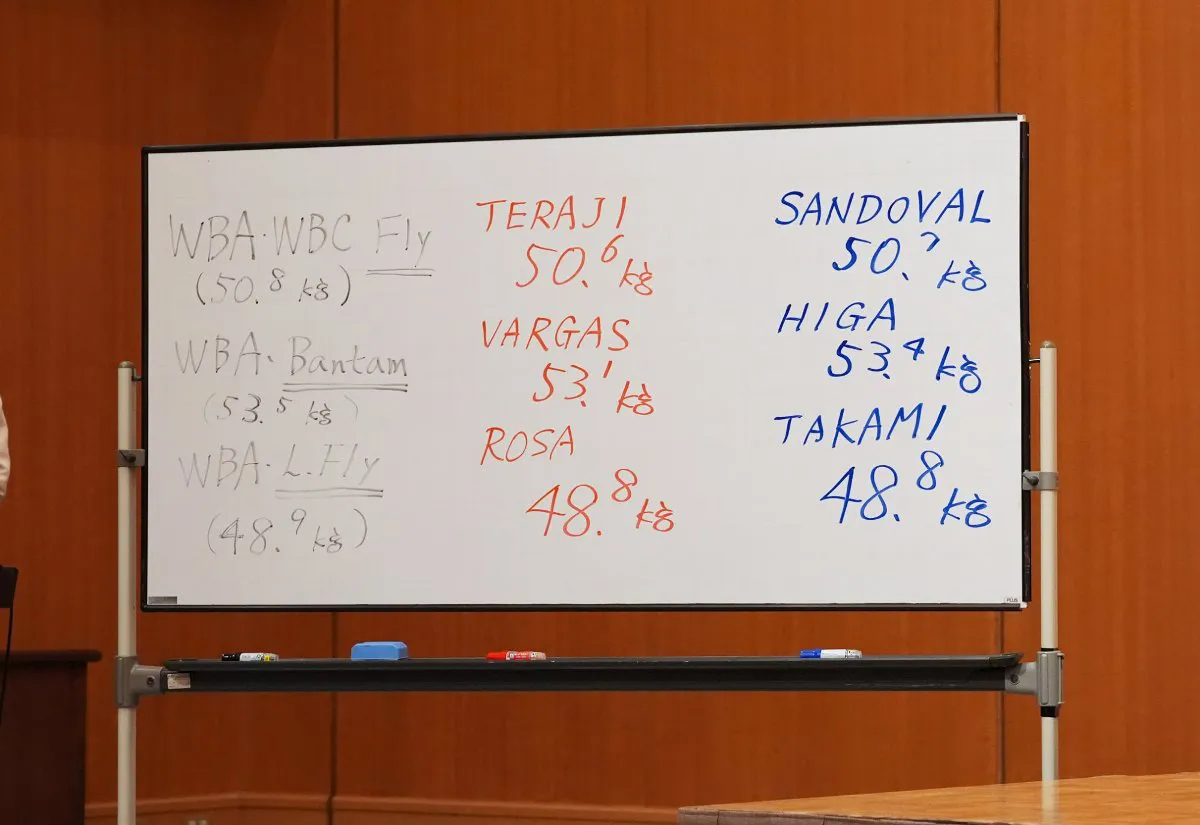 WBA・WBC Fly
(50.8 kg)
TERAJI
50.6 kg
SANDOVAL
50.7 kg
WBA・Bantam
(53.5 kg)
VARGAS
53.1 kg
HIGA
53.4 kg
WBA・L.Fly
(48.9 kg)
ROSA
48.8 kg
TAKAMI
48.8 kg
PLUS